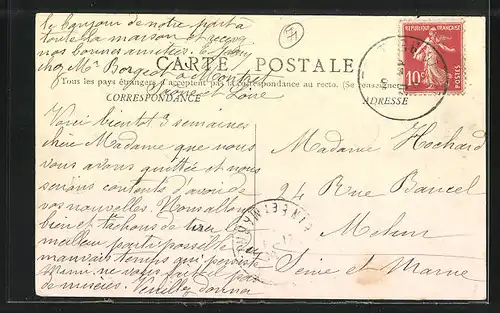 le bonjour de notre part à
toute la maison et recevez
nos bonnes amitiés
chez Mr Borgeot à Montret
Saône et Loire
CARTE POSTALE
Tous les pays étrangers n'acceptent pas la correspondance au recto. (Se renseigner
CORRESPONDANCE
ADRESSE
RÉPUBLIQUE FRANÇAISE
10c
POSTES
Voici bientôt 3 semaines
chère Madame que nous
vous avons quittée et nous
serions contents d'avoir de
vos nouvelles. Nous allons
bien et tachons de tirer le
meilleur parti possible du
mauvais temps qui persiste
Mimi ne nous fait pas
de misères. Veuillez donner
Madame Hochard
24 Rue Bancel
Melun
Seine et Marne